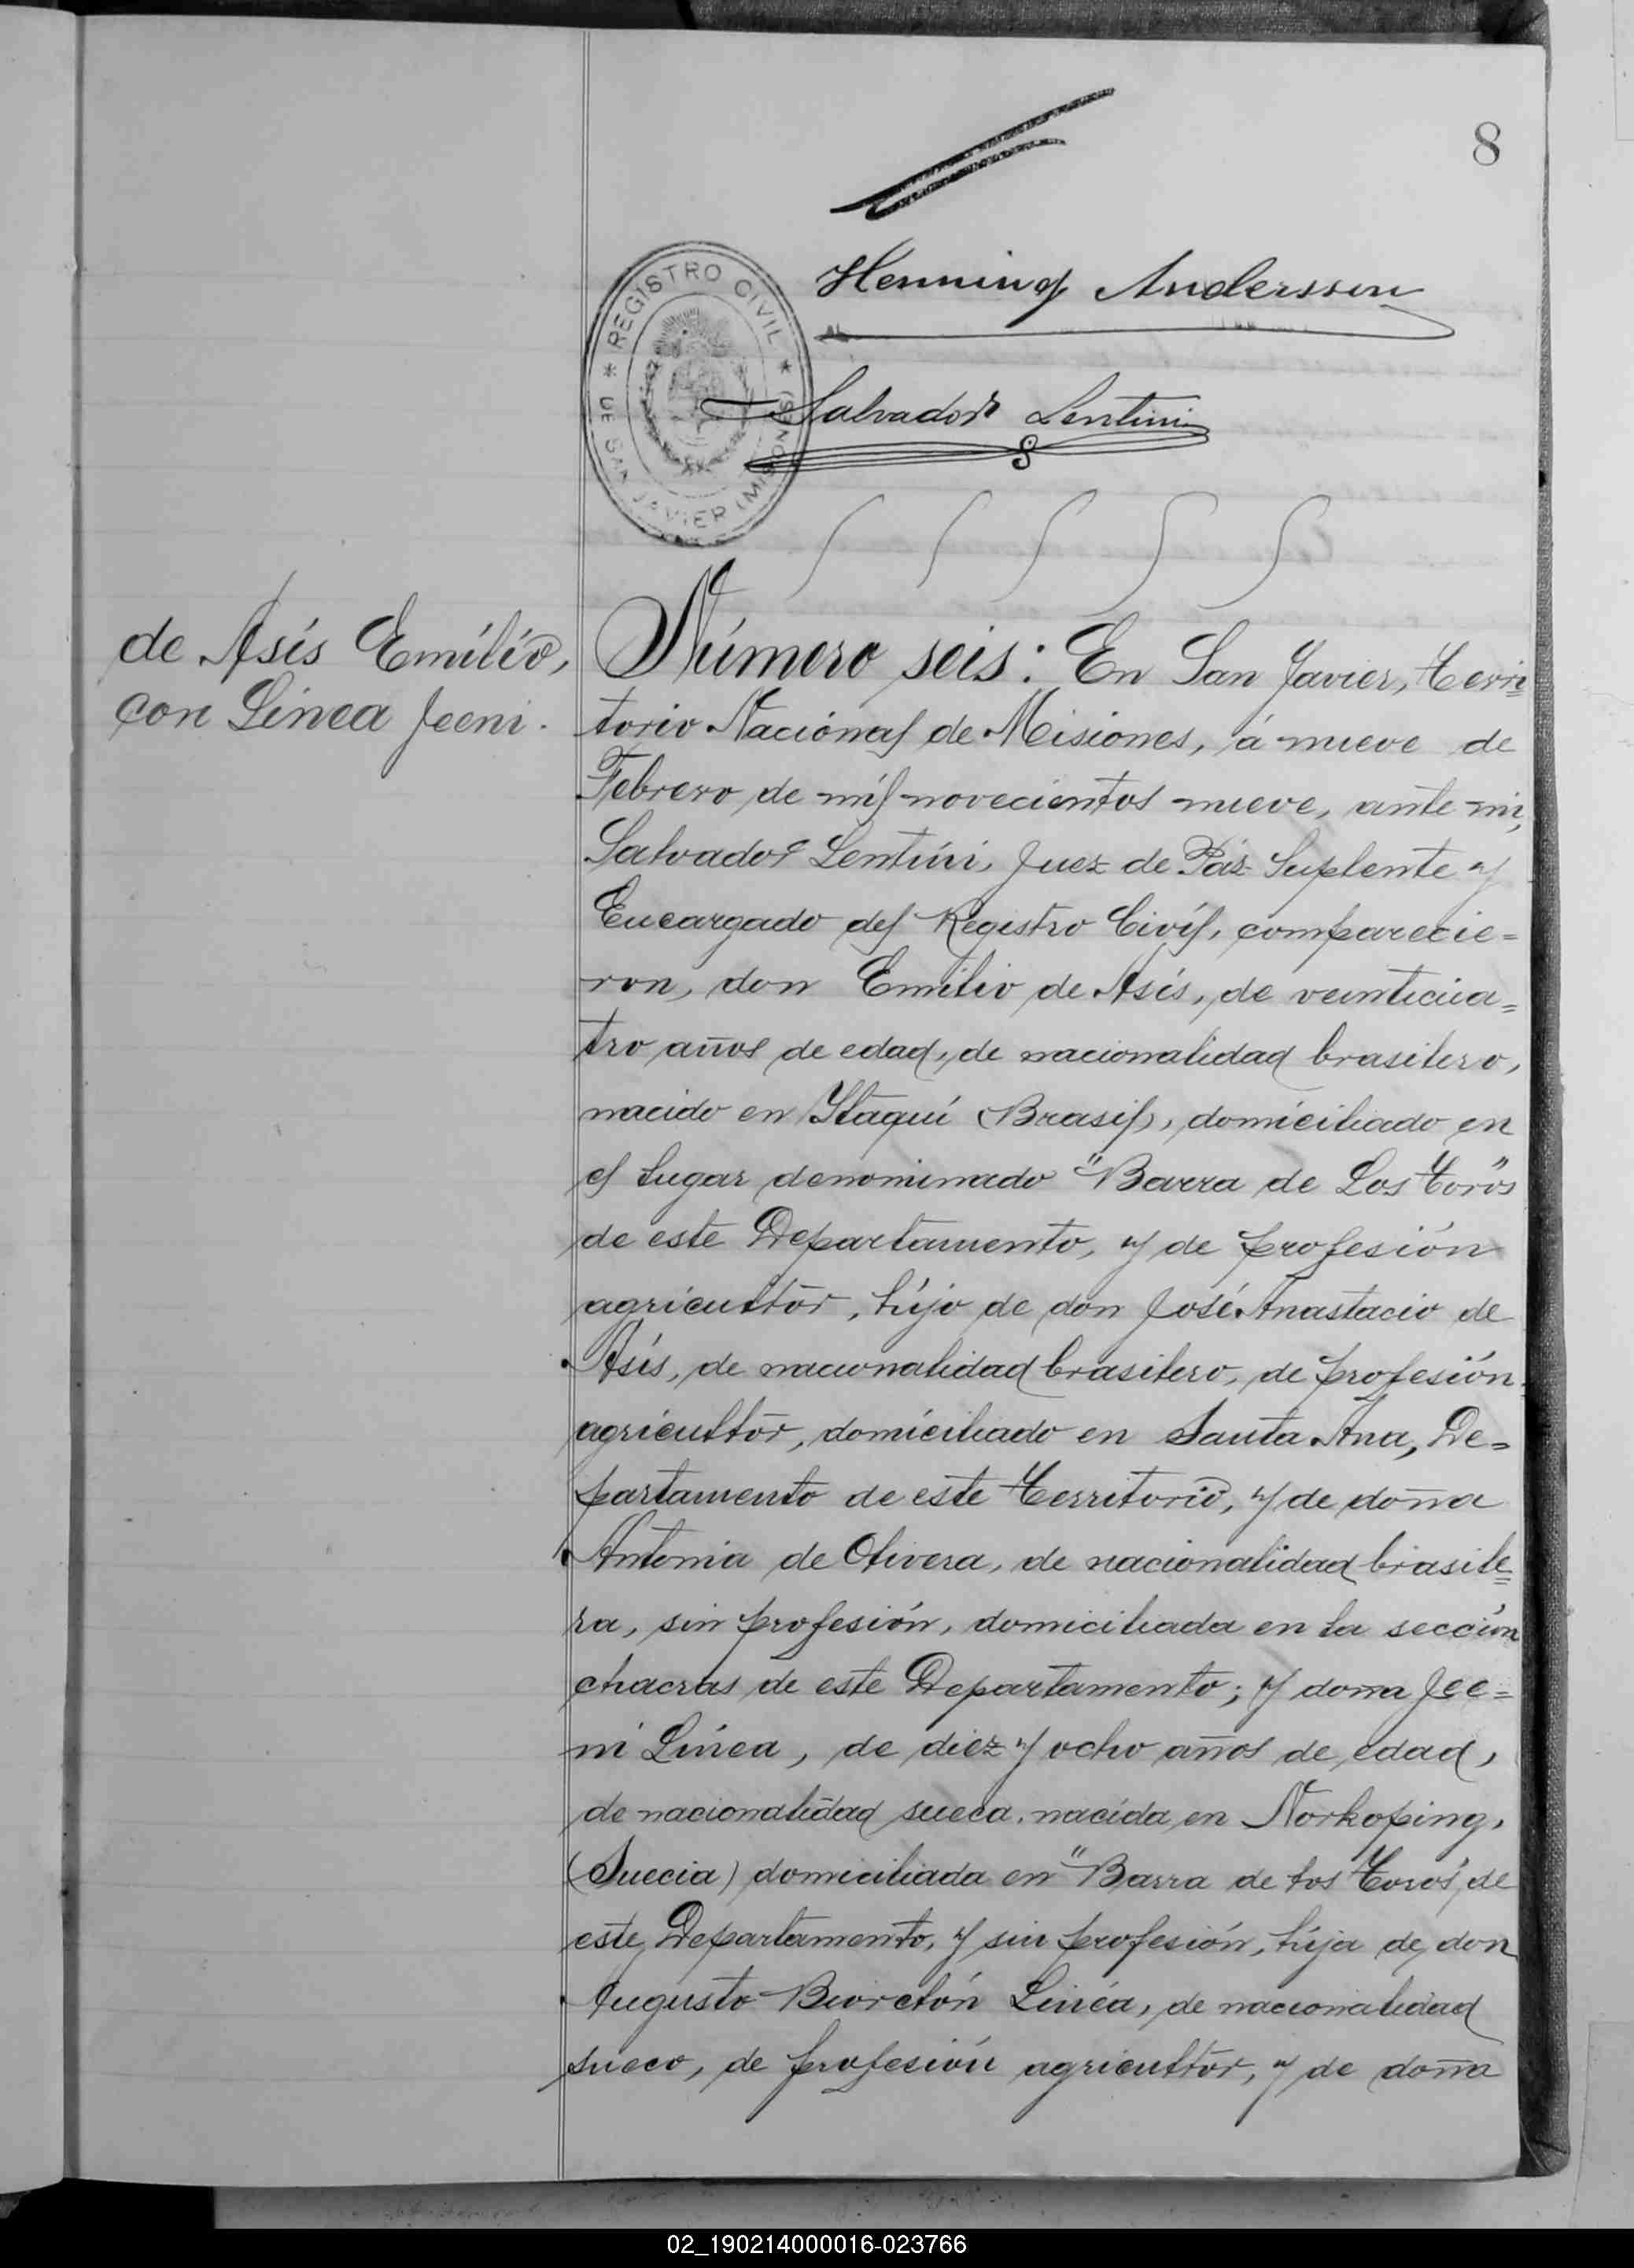 8
Henning Andersson
REGISTRO CIVIL
DE SAN JAVIER (MISIONES)
Salvador Lentini
de Asís Emilio,
con Linea Jeeni.
Número seis: En San Javier, Terri=
torio Nacional de Misiones, á nueve de
Febrero de mil novecientos nueve, ante mi,
Salvador Lentini, Juez de Páz Suplente y
Encargado del Registro Civil, comparecie=
ron, don Emilio de Asís, de veinticua=
tro años de edad, de nacionalidad brasilero,
nacido en Ytaquí (Brasil), domiciliado en
el lugar denominado "Barra de Los Toros"
de este Departamento, y de profesión
agricultor, hijo de don José Anastacio de
Asís, de nacionalidad brasilero, de profesión
agricultor, domiciliado en Santa Ana, De=
partamento de este Territorio, y de doña
Antonia de Olivera, de nacionalidad brasile=
ra, sin profesión, domiciliada en la sección
chacras de este Departamento; y doña Jee=
ni Linea, de diez y ocho años de edad,
de nacionalidad sueca, nacida en Norkoping,
(Suecia) domiciliada en "Barra de los Toros", de
este Departamento, y sin profesión, hija de don
Augusto Linea, de nacionalidad
sueco, de profesión agricultor, y de doña
02_190214000016-023766